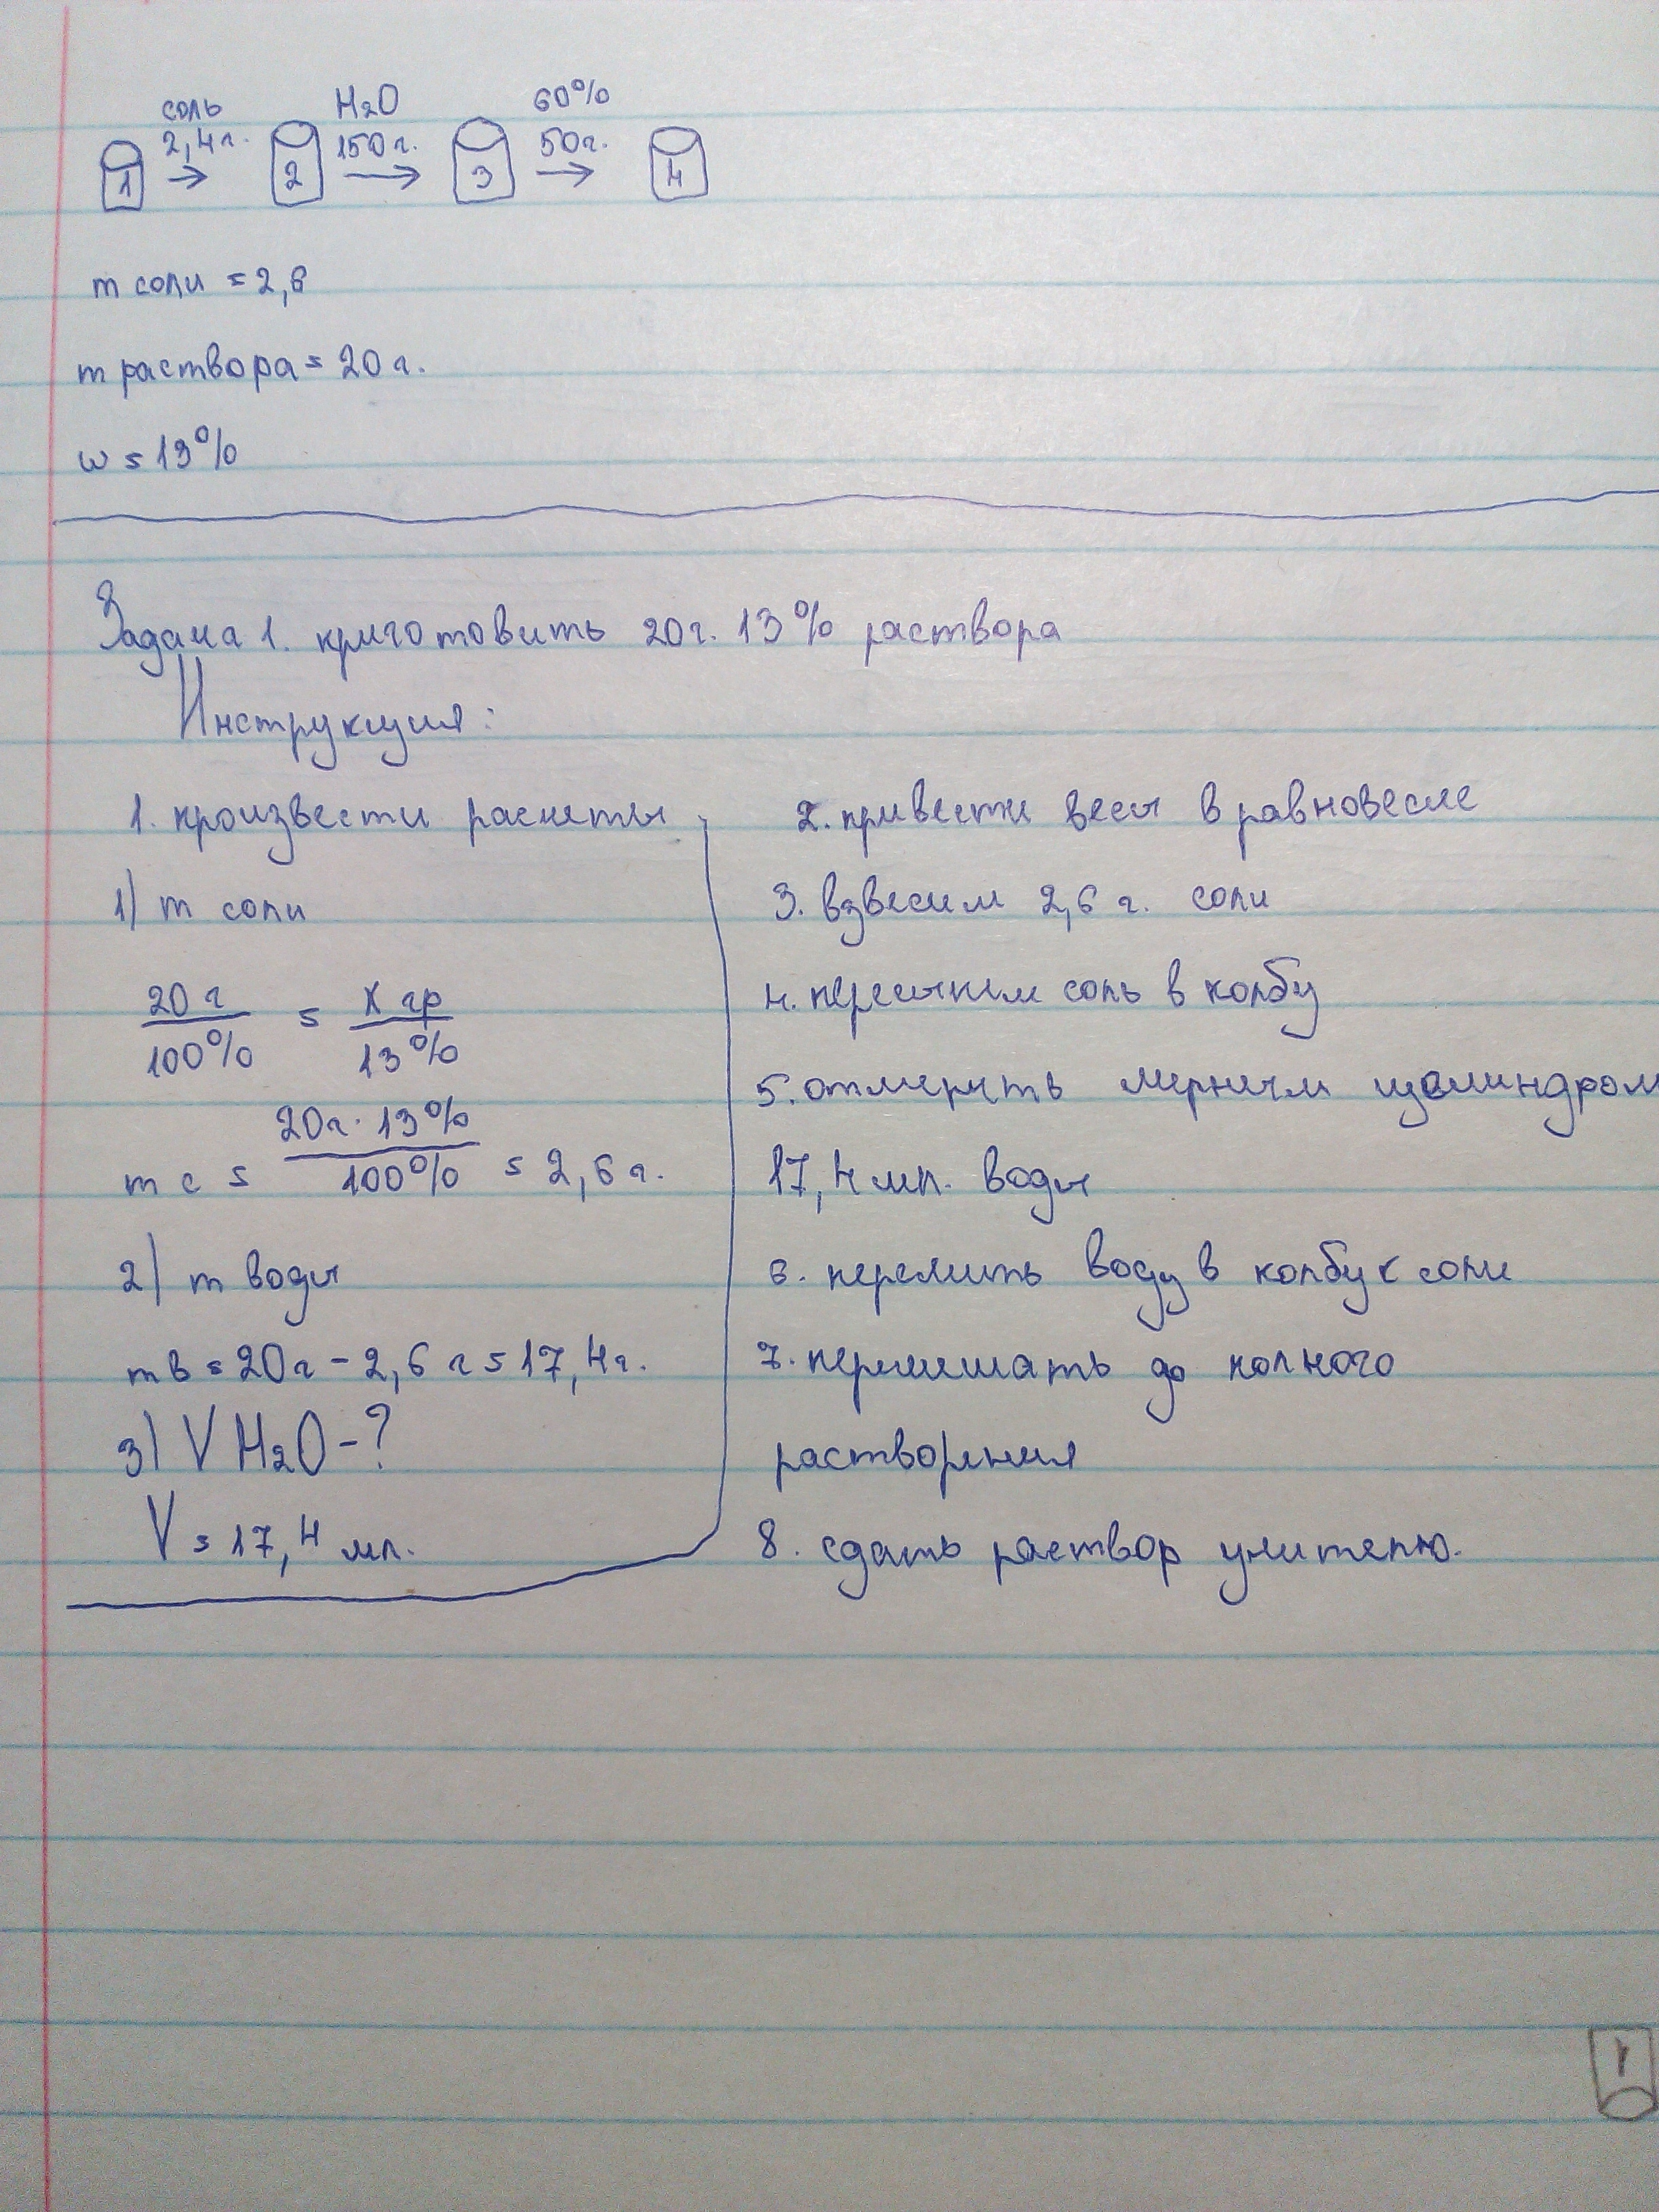 соль H₂O 60%
2,4г. 150г. 50г.
1 → 2 → 3 → 4
m соли = 2,6
m раствора = 20 г.
ω = 13%
Задача 1. приготовить 20г. 13% раствора
Инструкция:
1. произвести расчеты
1) m соли
20 г / 100% = X гр / 13%
m с = 20г. · 13% / 100% = 2,6 г.
2) m воды
m в = 20г - 2,6 г = 17,4г.
3) V H₂O - ?
V = 17,4 мл.
2. привести весы в равновесие
3. взвесим 2,6 г. соли
4. пересыпем соль в колбу
5. отмерить мерным цилиндром
17,4 мл. воды
6. перелить воду в колбу к соли
7. перемешать до полного
растворения
8. сдать раствор учителю.
1